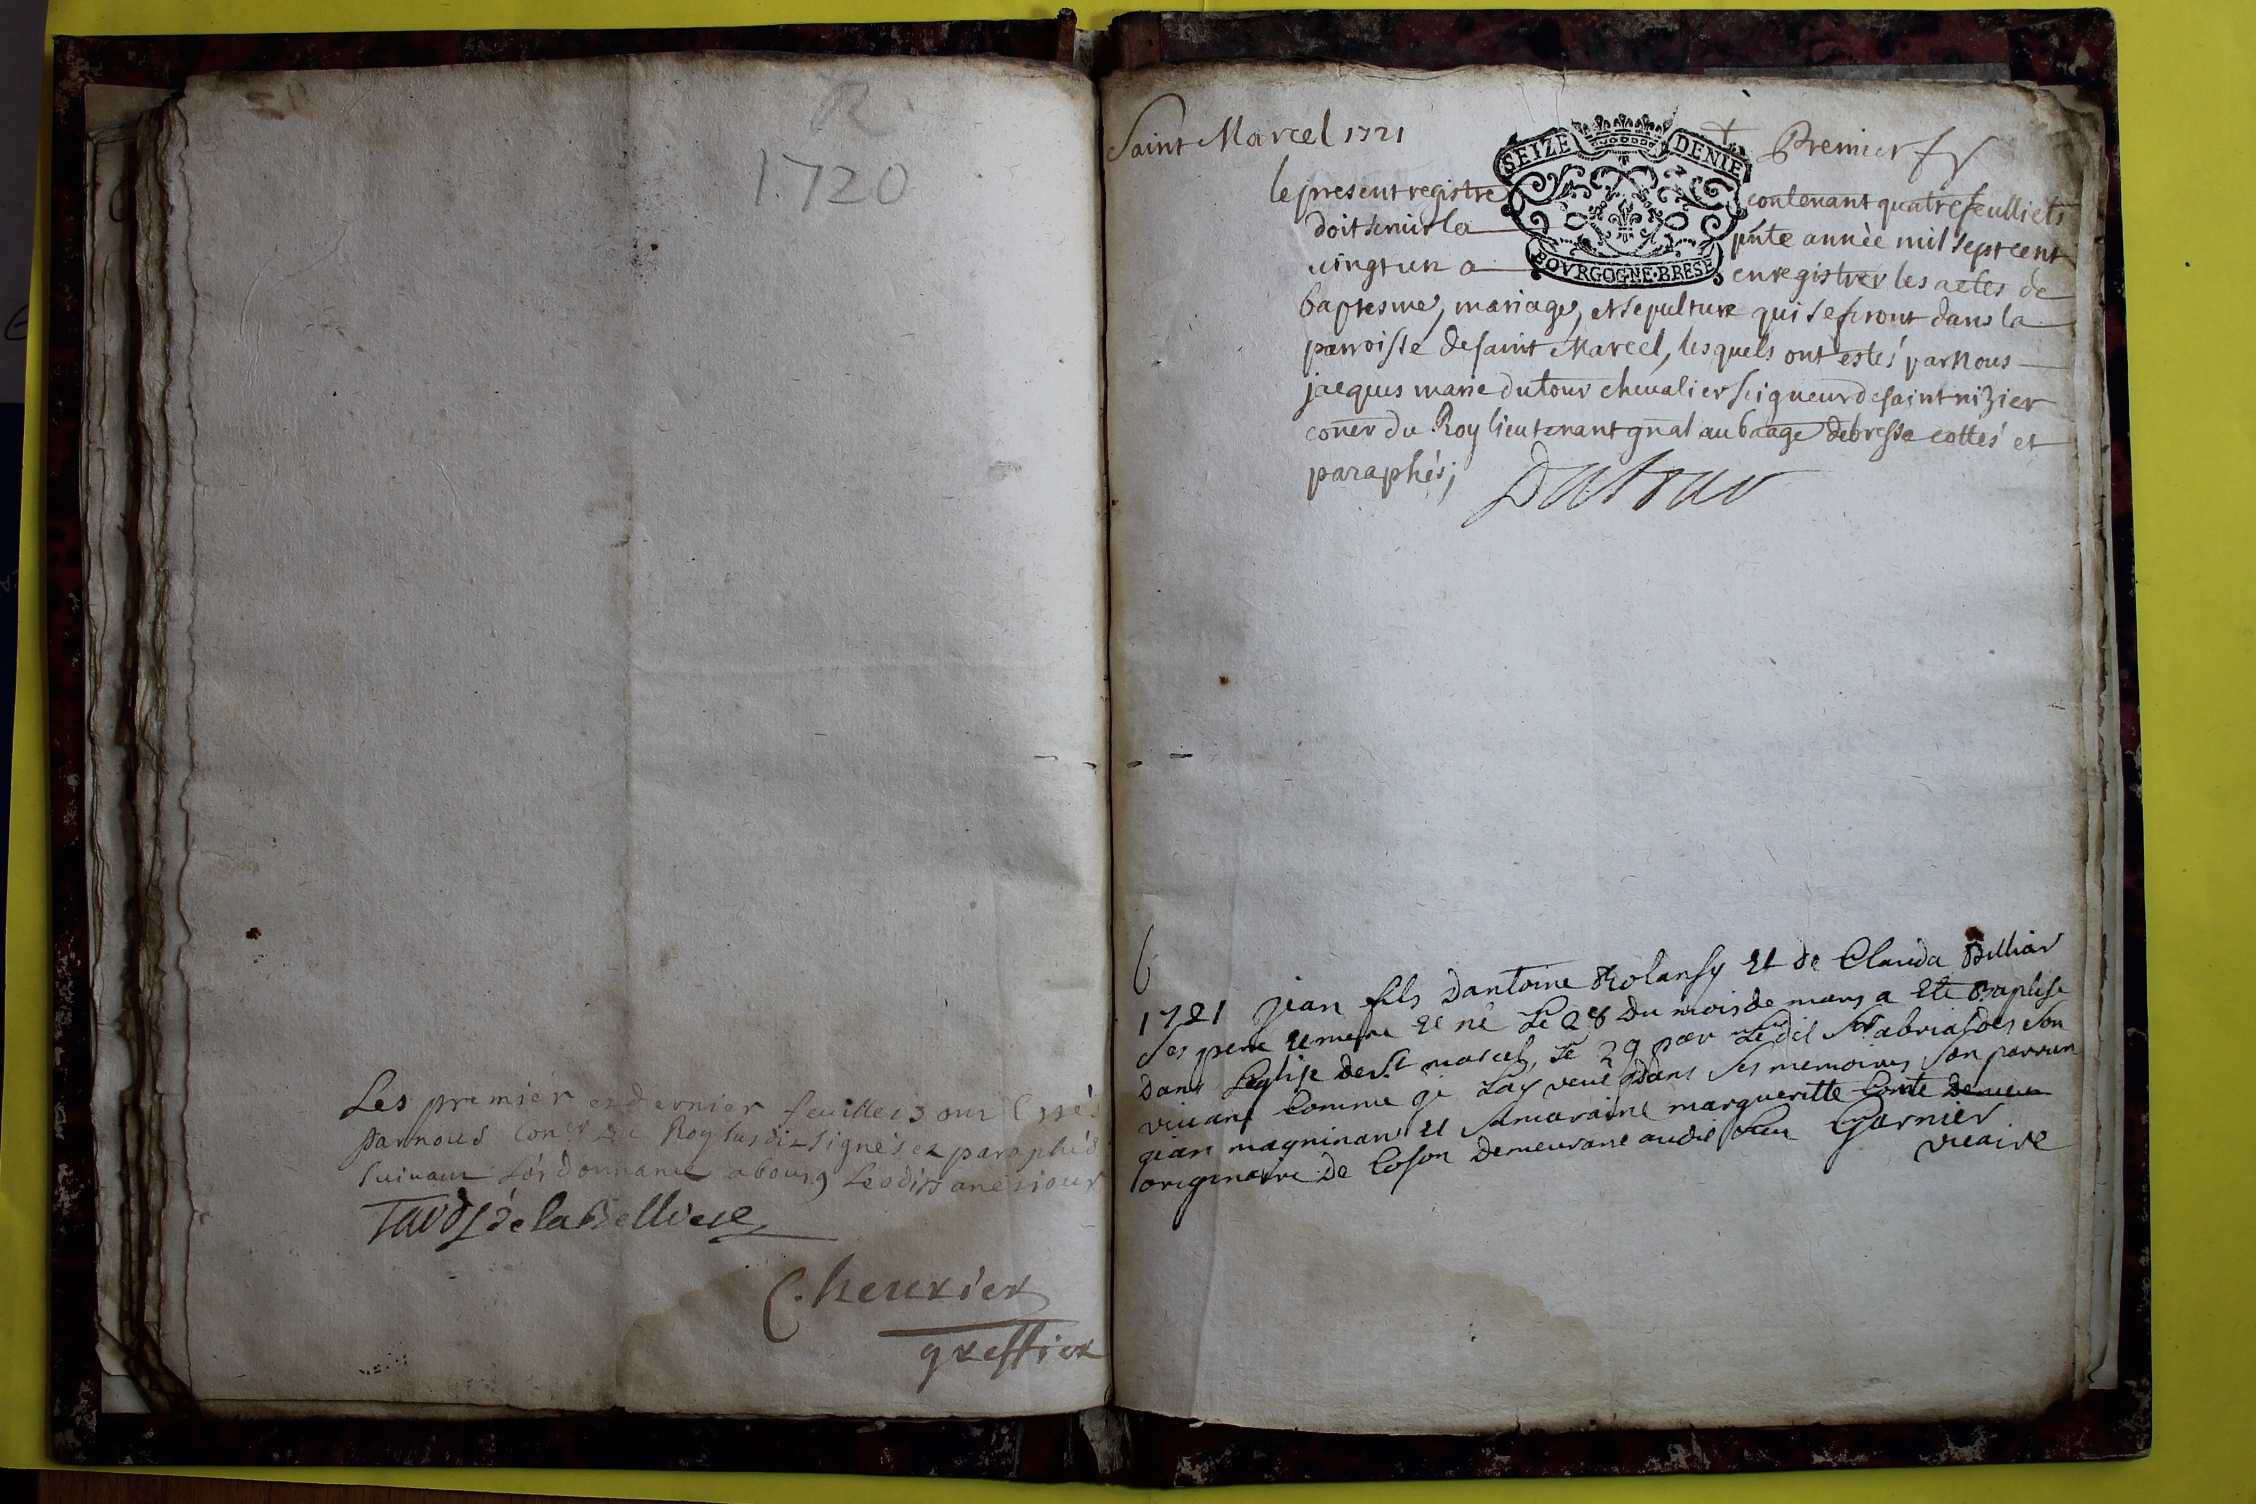 R
1720
Les premier et dernier feuillets ont estés
par nous Con.er du Roy susdit signés et paraphés
suivant l'ordonnance a bourg lesdits an et jour
de la Belliere
Cheurier
greffier
Saint Marcel 1721
SEIZE DENIE
BOVRGOGNE·BRESE
Premier
le present registre contenant quatre feulliets
doit servir la pñte année mil sept cent
vingt un a enregistrer les actes de
baptesme, mariage, et sepulture qui se feront dans la
parroisse de saint Marcel, lesquels ont estés par Nous
jacques marie dutour chevalier seigneur de saint nizier
coner du Roy lieutenant gnal au baage de bresse cottés et
paraphés;
Dutour
6
1721 jean fils dantoine et de Clauda Billiar
ses pere et mere et né le 28 du mois de mars a été Baptisé
dans leglise de St marcel, le 29 par le dit Sr son
vivant comme je lay veue dans ses memoires son parrain
jean magninan et sa maraine margueritte Comte
originaire de demeurant audit lieu Garnier
vicaire